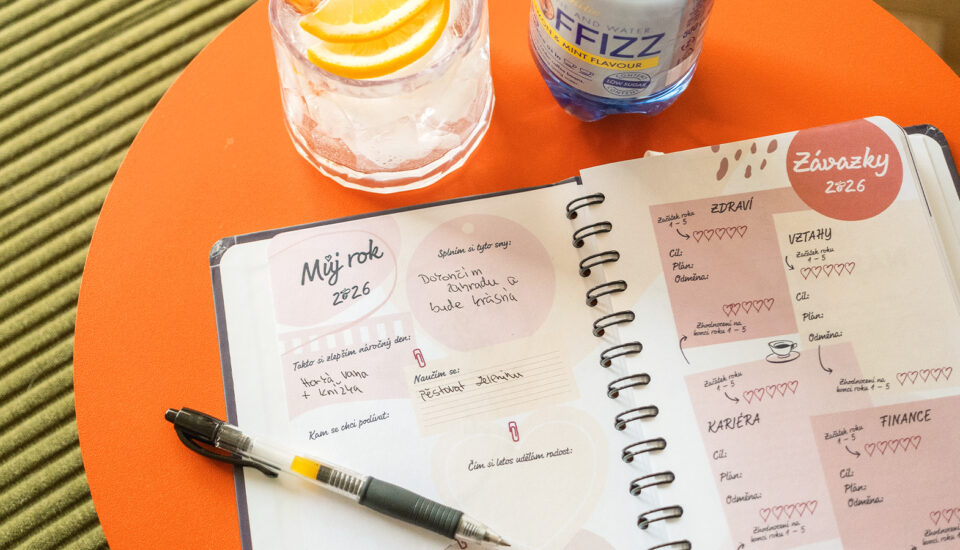 AND WATER
FFIZZ
& MINT FLAVOUR
LOW SUGAR
CONTENT
Můj rok
2026
Splním si tyto sny:
Dotončím
zahradu a
bude krásná
Takto si zlepším náročný den:
Horká vana
+ knížka
Naučím se:
pěstovat zeleninu
Kam se chci podívat:
Čím si letos udělám radost:
Závazky
2026
ZDRAVÍ
Začátek roku
1 - 5
Cíl:
Plán:
Odměna:
Zhodnocení na
konci roku 1 - 5
VZTAHY
Začátek roku
1 - 5
Cíl:
Plán:
Odměna:
Zhodnocení na
konci roku 1 - 5
KARIÉRA
Začátek roku
1 - 5
Cíl:
Plán:
Odměna:
Zhodnocení na
konci roku 1 - 5
FINANCE
Začátek roku
1 - 5
Cíl:
Plán:
Odměna:
Zhodnocení na
konci roku 1 - 5